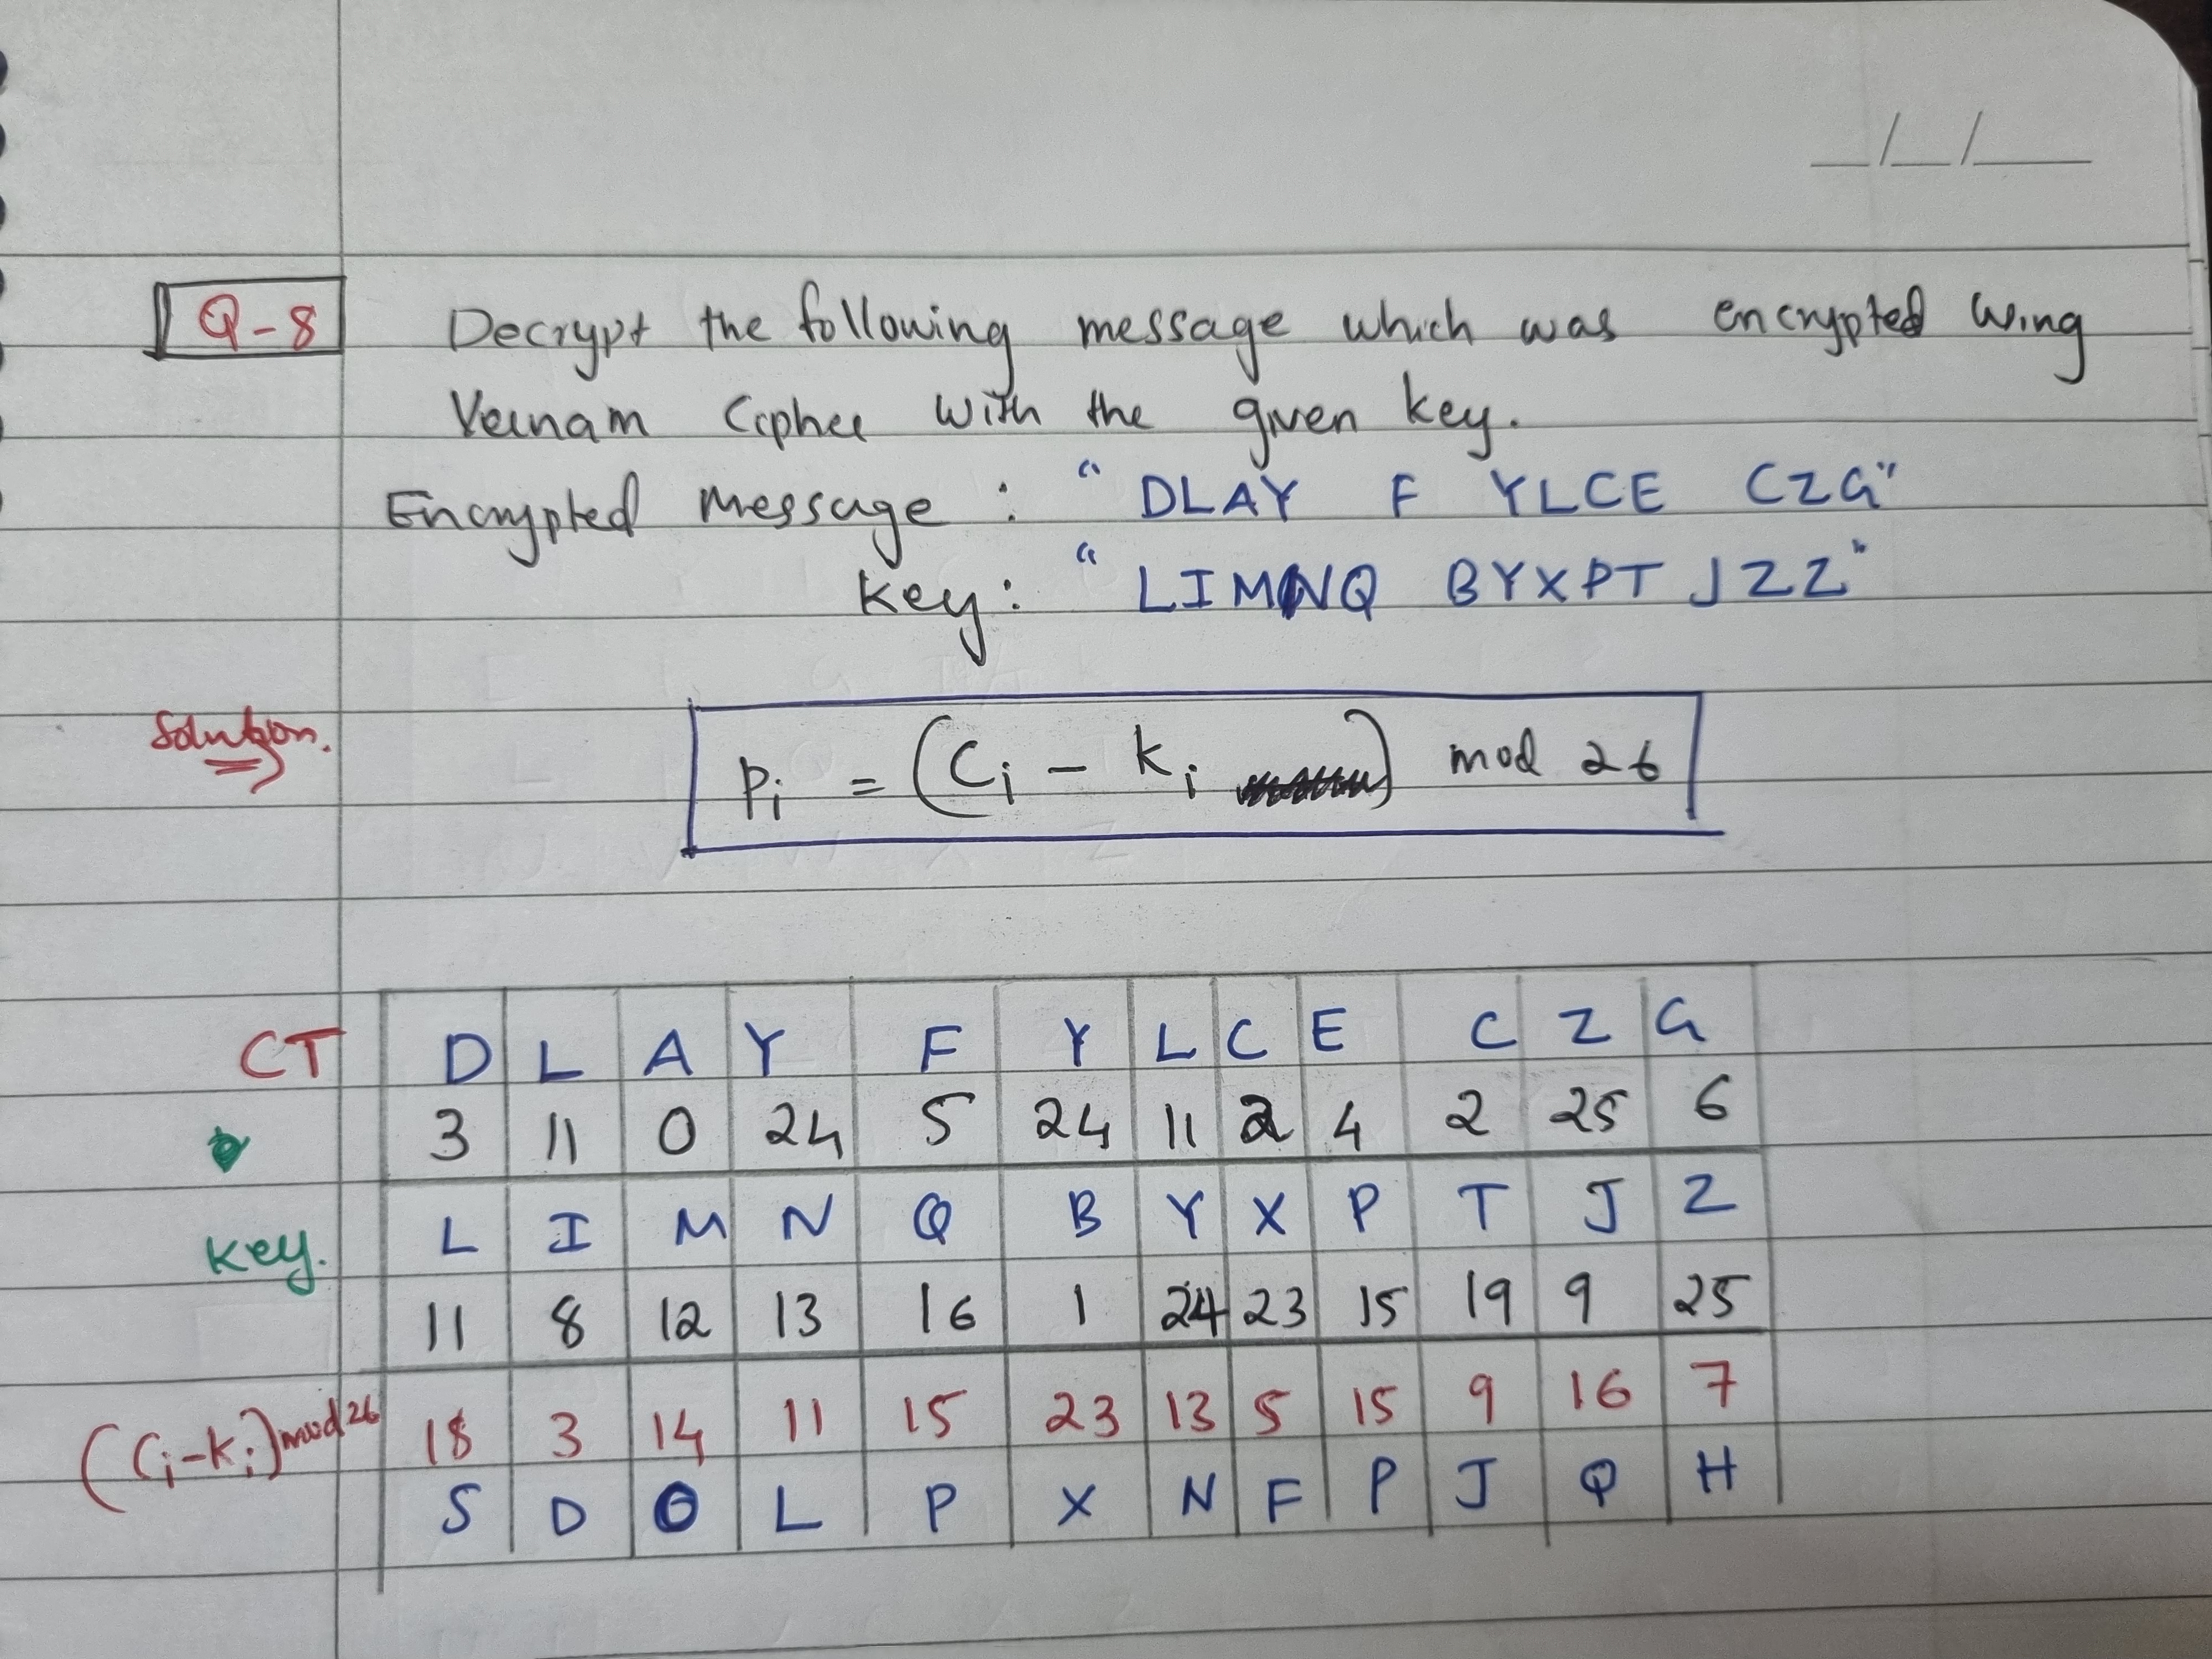 __/__/__
Q-8 Decrypt the following message which was encrypted using
Vernam Cipher with the given key.
Encrypted message : "DLAY F YLCE CZG"
Key: "LIMNQ BYXPT JZZ"
Solution.
Pi = (Ci - Ki) mod 26
CT D L A Y F Y L C E C Z G
3 11 0 24 5 24 11 2 4 2 25 6
Key. L I M N Q B Y X P T J Z
11 8 12 13 16 1 24 23 15 19 9 25
(Ci-Ki) mod 26 18 3 14 11 15 23 13 5 15 9 16 7
S D O L P X N F P J Q H